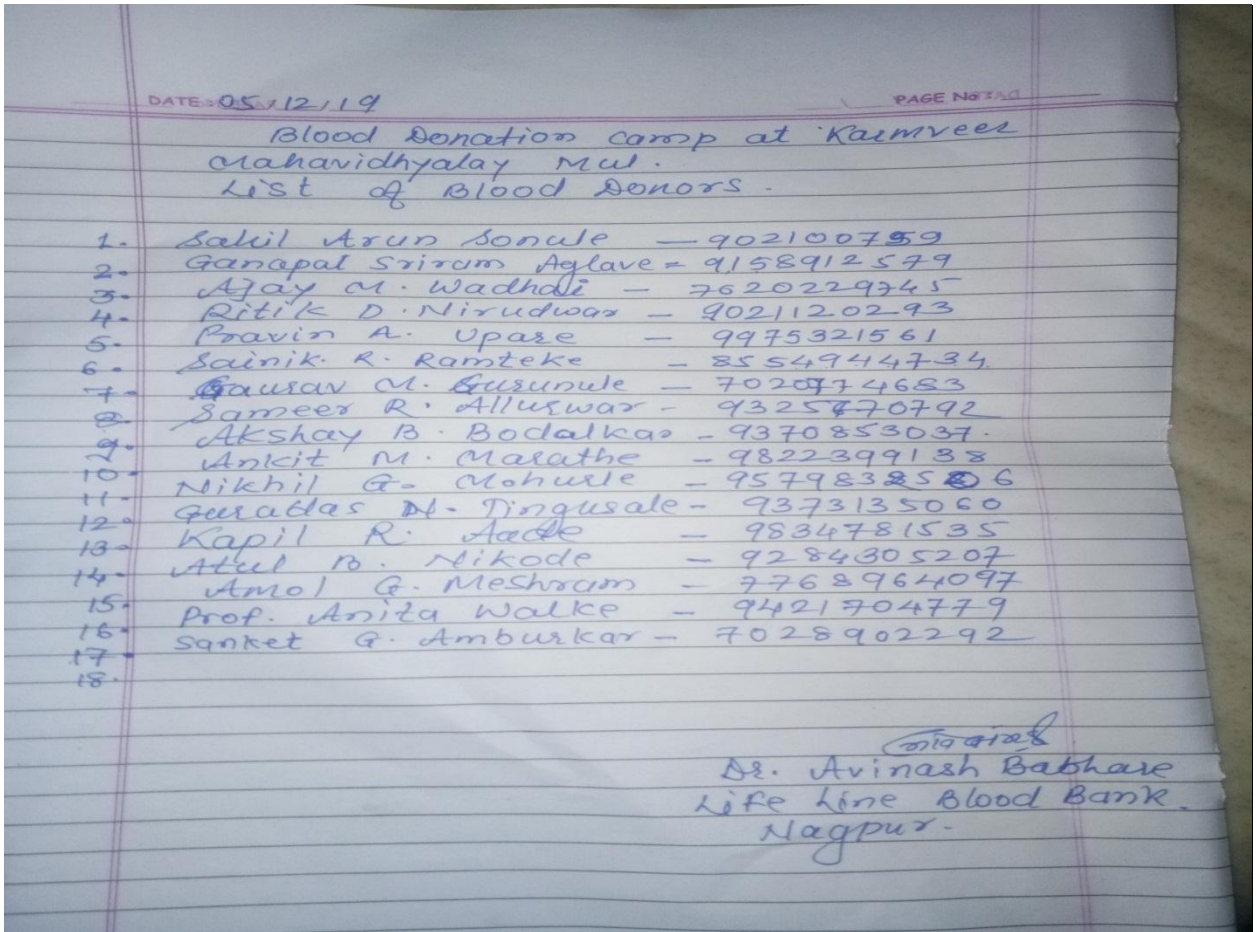 DATE: 05/12/19
PAGE No
Blood Donation camp at Karmveer
Mahavidhyalay Mul.
List of Blood Donors.
1. Sahil Arun Sonule — 902100759
2. Ganapat Sriram Aglave = 9158912579
3. Ajay M. Wadhai — 7620229745
4. Ritik D. Nirudwar — 9021120293
5. Pravin A. Upare — 9975321561
6. Sainik. R. Ramteke — 8554944734
7. Gaurav M. Gurunule — 7020774683
8. Sameer R. Allurwar — 9325870792
9. Akshay B. Bodalkar — 9370853037.
10 Ankit M. Marathe — 9822399138
11 Nikhil G. Mohurle —
12 Gurudas N. Tingusale — 9373135060
13 Kapil R. Aade — 9834781535
14 Atul B. Nikode — 9284305207
15. Amol G. Meshram — 7768964097
16 Prof. Anita Walke — 9421704779
17 Sanket G. Amburkar — 7028902292
18.
Dr. Avinash Babhare
Life Line Blood Bank.
Nagpur.